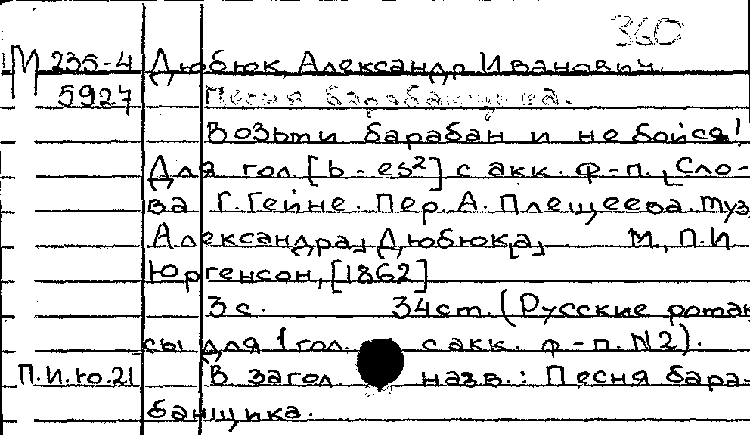 360
М 235-4 Дюбюк, Александр Иванович.
5927 Песня барабанщика.
Возьми барабан и не бойся!
Для гол. [b - es²] с акк. ф-п. [Сло-
ва Г. Гейне. Пер. А. Плещеева. Муз
Александра] Дюбюк[а] М., П. И
Юргенсон, [1862]
3 с. 34 cm. (Русские роман
сы для 1 гол. с акк. ф-п. N2).
П.И.Ю.21 В загол назв.: Песня бара-
банщика.